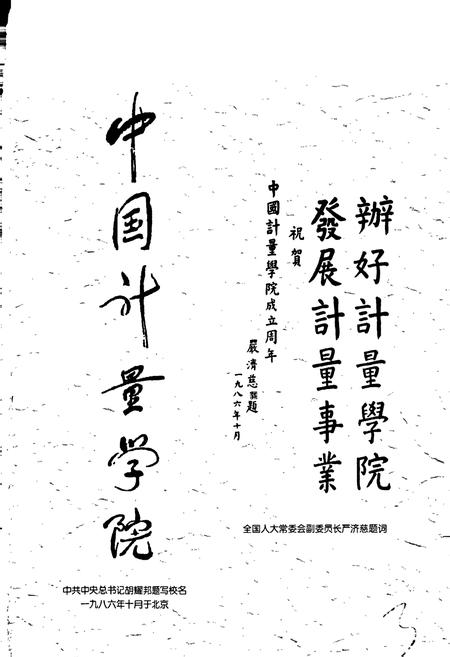 辦好計量學院
發展計量事業
祝賀
中國計量學院成立周年
嚴濟慈題
一九八六年十月
全国人大常委会副委员长严济慈题词
中国计量学院
中共中央总书记胡耀邦题写校名
一九八六年十月于北京